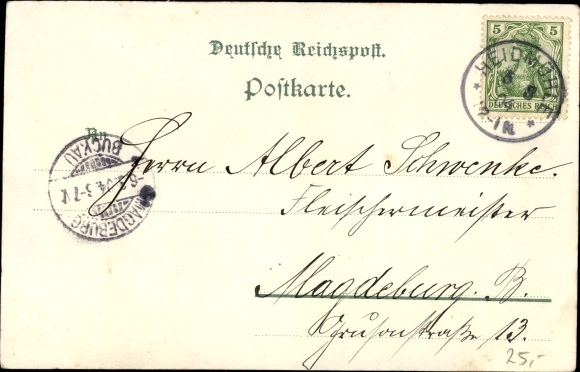 Deutsche Reichspost.
Postkarte.
5 5
DEUTSCHES REICH
HEIDMÜHLE
5 8
An
BUCKAU
3-7 V.
MAGDEBURG
Herrn Albert Schwenke.
Fleischermeister
Magdeburg. B.
Grusonstraße 13.
25,-